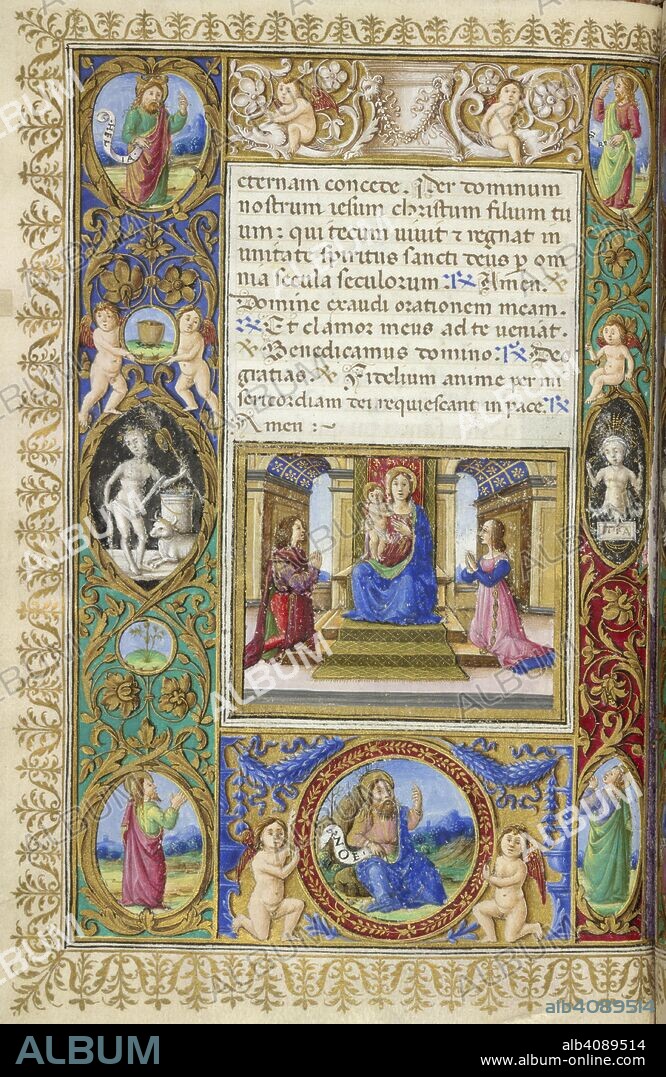 eternam concede. Per dominum
nostrum iesum christum filium tu
um: qui tecum uiuit ⁊ regnat in
unitate spiritus sancti deus p om
nia secula seculorum. ℟ Amen. ℣
Domine exaudi orationem meam.
℟ Et clamor meus ad te ueniat.
℣ Benedicamus domino. ℟ Deo
gratias. ℣ Fidelium anime per mi
sericordiam dei requiescant in pace. ℟
Amen :~
NOE
ALBUM
alb4089514
ALBUM
alb4089514
www.album-online.com